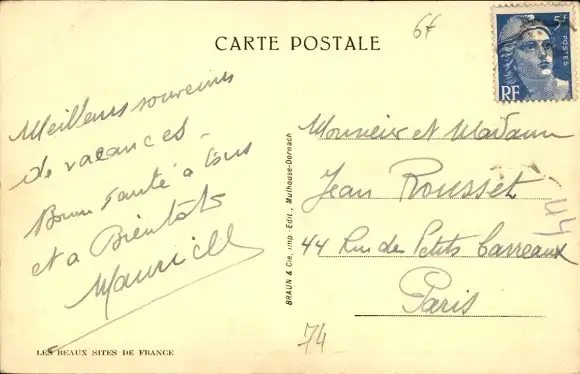 CARTE POSTALE
67
5F
POSTES
RF
Meilleurs souvenirs
de vacances -
Bonne santé à tous
et a Bientôt
Monsieur et Madame
Jean Rousset
44 Rue des Petits Carreaux
Paris
BRAUN & Cie, imp.-Edit., Mulhouse-Dornach
74
44
LES BEAUX SITES DE FRANCE